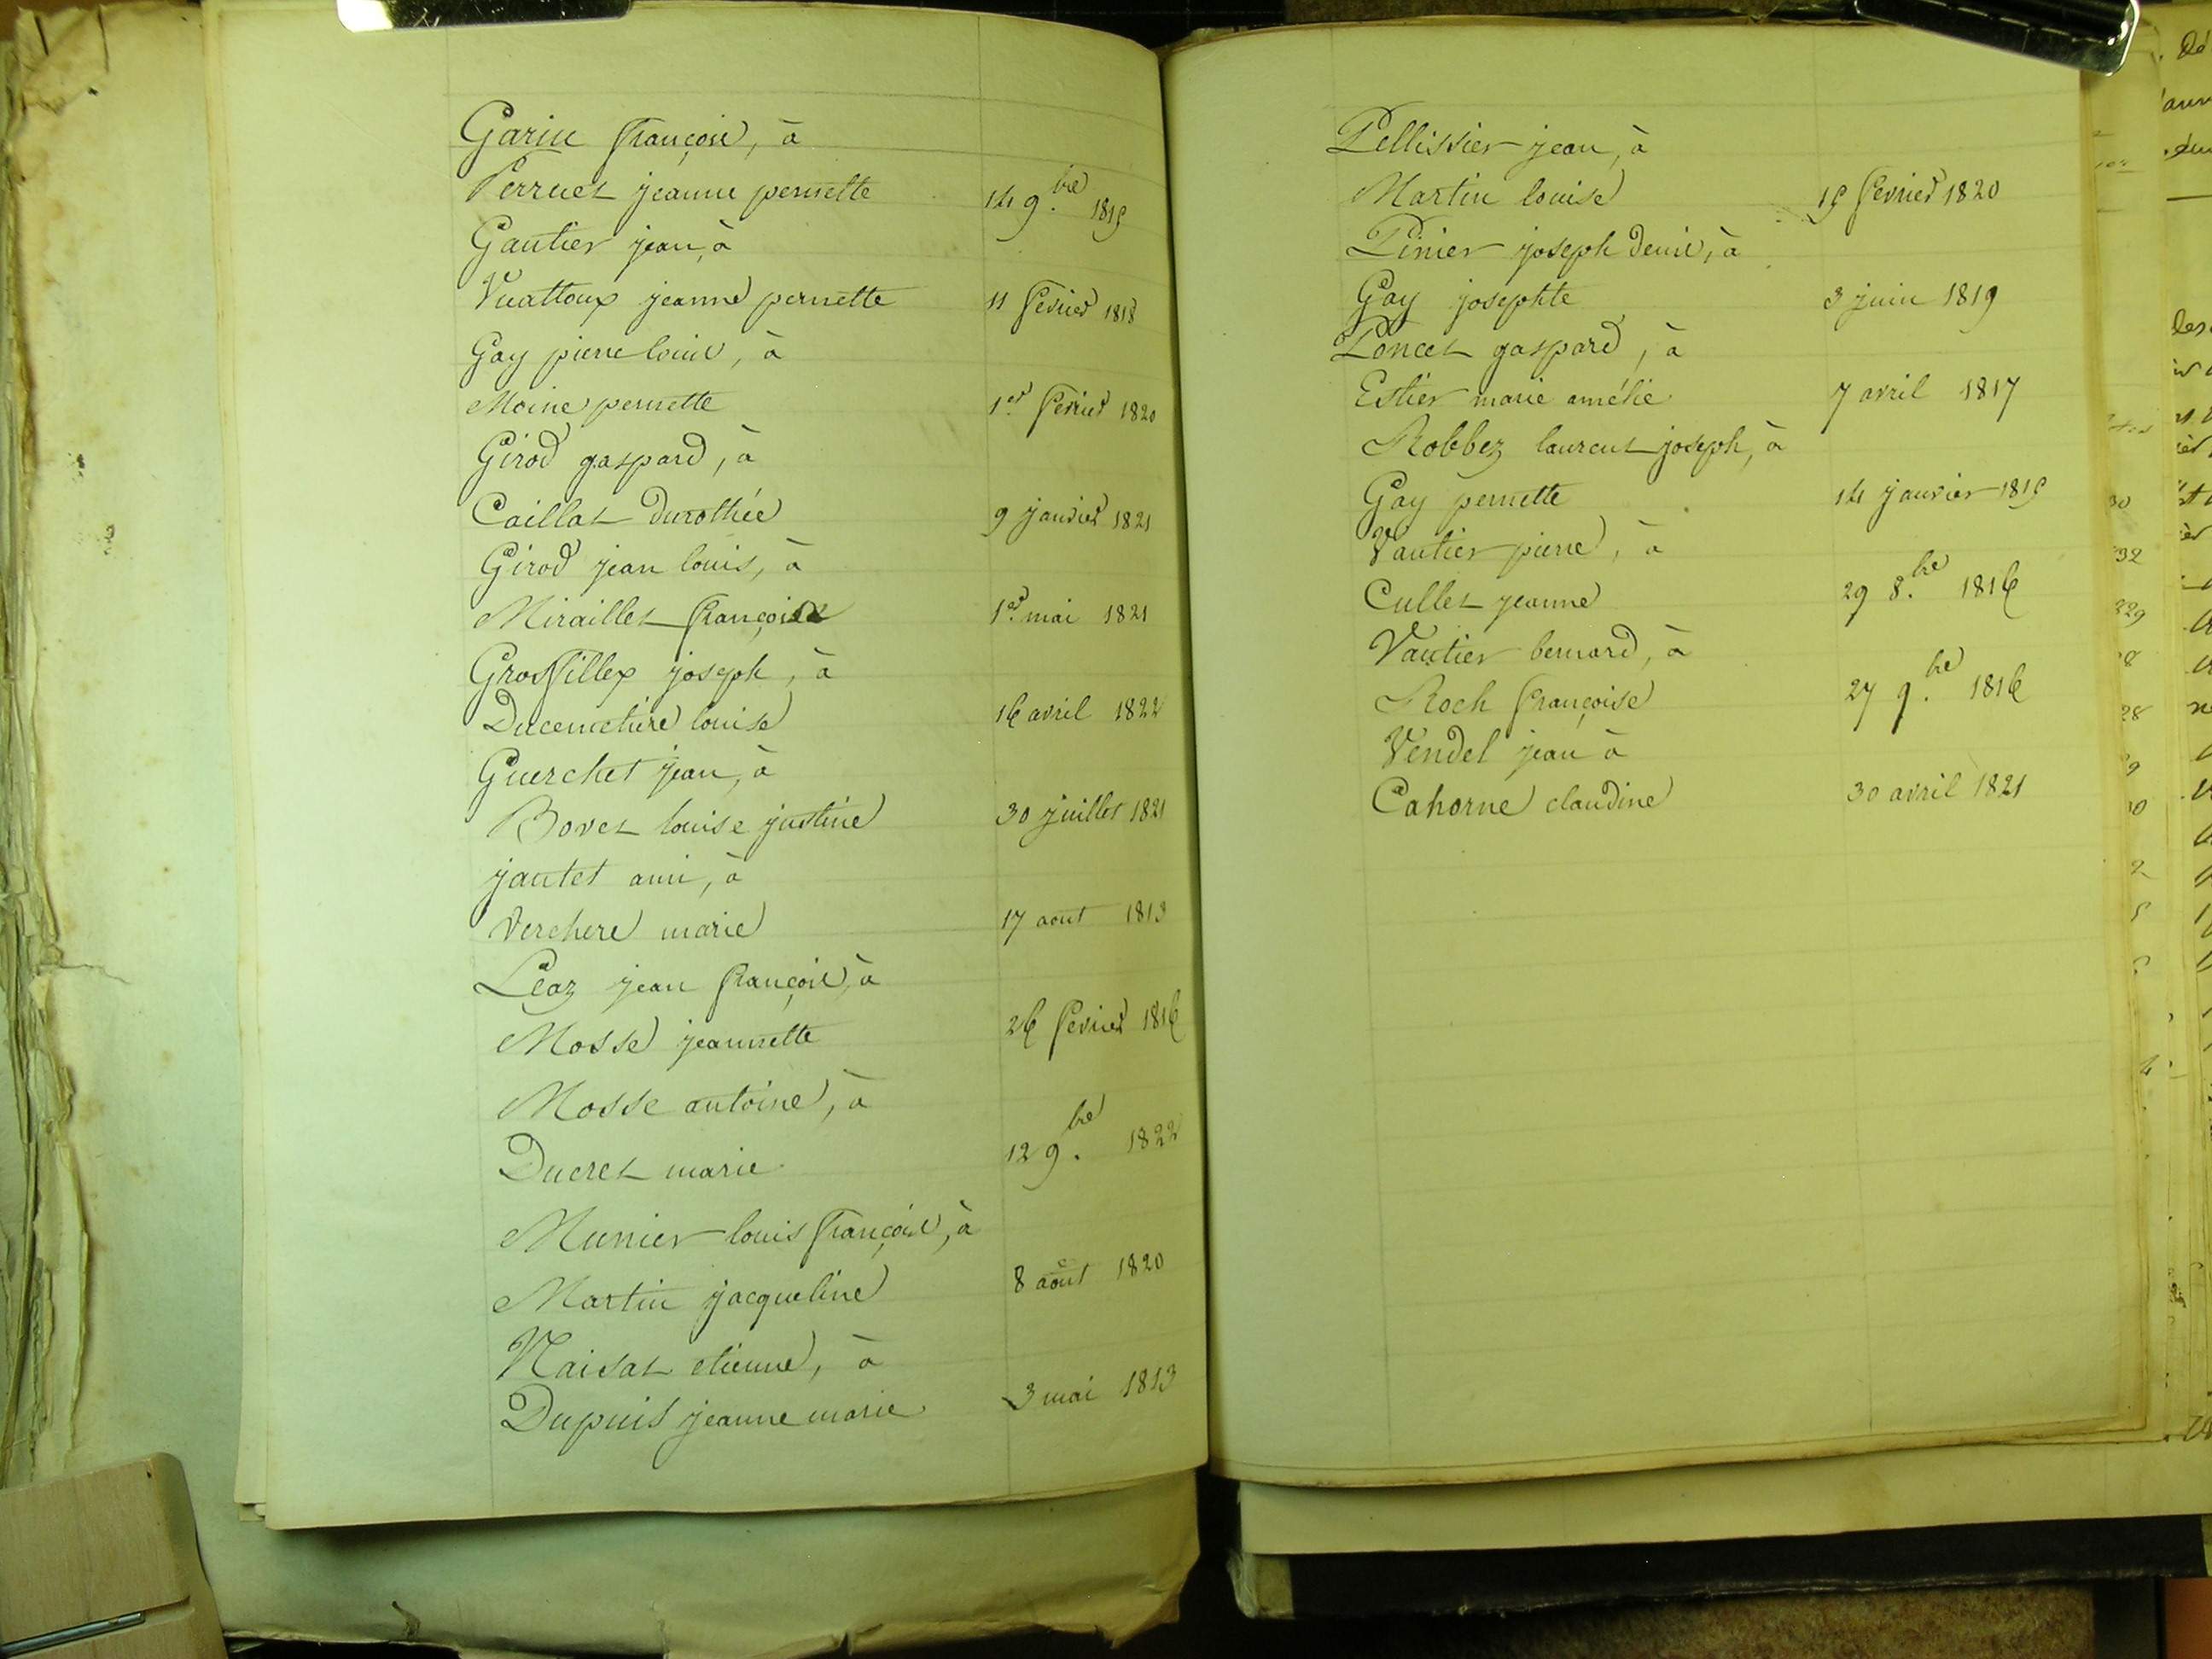 Garin françois, à
Perruet jeanne pernette 14 9.bre 1815
Gautier jean, à
Vuattoux jeanne pernette 11 fevrier 1818
Gay pierre louis, à
Moine pernette 1er fevrier 1820
Girod gaspard, à
Caillat durothée 9 janvier 1821
Girod jean louis, à
Miraillet françoise 1er mai 1821
Grosfillex joseph, à
Ducemetiere louise 16 avril 1822
Guerchet jean, à
Bovet louise justine 30 juillet 1821
jautet ami, à
Verchere marie 17 aout 1813
Léaz jean françois, à
Mosse jeannette 26 fevrier 1816
Mosse antoine, à
Ducret marie 12 9.bre 1822
Munier louis françois, à
Martin jacqueline 8 août 1820
Naisat etienne, à
Dupuis jeanne marie 3 mai 1813
Pellissier jean, à
Martin louise 15 fevrier 1820
Pinier joseph denis, à
Gay josephte 3 juin 1819
Poncet gaspard, à
Estier marie amélie 7 avril 1817
Robbez laurent joseph, à
Gay pernette 14 janvier 1815
Vautier pierre, à
Cullet jeanne 29 8.bre 1816
Vautier bernard, à
Roch françoise 27 9.bre 1816
Vendel jean à
Cahorne claudine 30 avril 1821